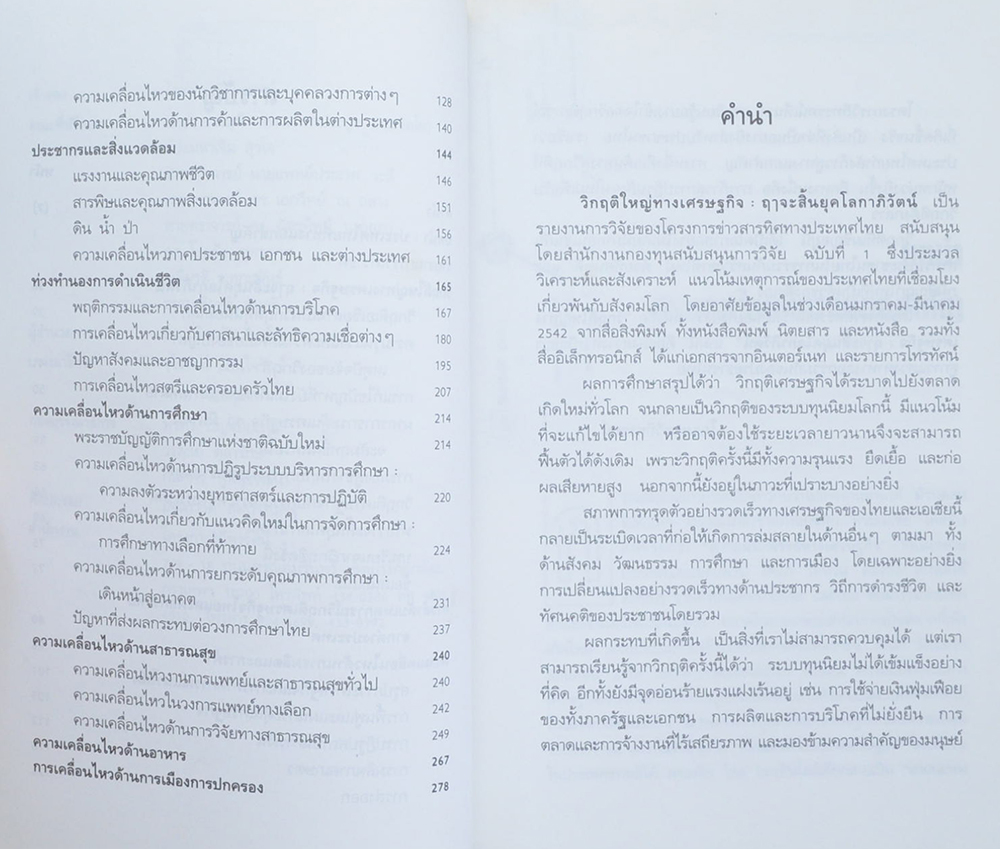 ความเคลื่อนไหวของนักวิชาการและบุคคลวงการต่างๆ 128
ความเคลื่อนไหวด้านการค้าและการผลิตในต่างประเทศ 140
ประชากรและสิ่งแวดล้อม 144
แรงงานและคุณภาพชีวิต 146
สารพิษและคุณภาพสิ่งแวดล้อม 151
ดิน น้ำ ป่า 156
ความเคลื่อนไหวภาคประชาชน เอกชน และต่างประเทศ 161
ท่วงทำนองการดำเนินชีวิต 165
พฤติกรรมและการเคลื่อนไหวด้านการบริโภค 167
การเคลื่อนไหวเกี่ยวกับศาสนาและลัทธิความเชื่อต่างๆ 180
ปัญหาสังคมและอาชญากรรม 195
การเคลื่อนไหวสตรีและครอบครัวไทย 207
ความเคลื่อนไหวด้านการศึกษา 214
พระราชบัญญัติการศึกษาแห่งชาติฉบับใหม่ 214
ความเคลื่อนไหวด้านการปฏิรูประบบบริหารการศึกษา :
ความลงตัวระหว่างยุทธศาสตร์และการปฏิบัติ 220
ความเคลื่อนไหวเกี่ยวกับแนวคิดใหม่ในการจัดการศึกษา :
การศึกษาทางเลือกที่ท้าทาย 224
ความเคลื่อนไหวด้านการยกระดับคุณภาพการศึกษา :
เดินหน้าสู่อนาคต 231
ปัญหาที่ส่งผลกระทบต่อวงการศึกษาไทย 237
ความเคลื่อนไหวด้านสาธารณสุข 240
ความเคลื่อนไหวงานการแพทย์และสาธารณสุขทั่วไป 240
ความเคลื่อนไหวในวงการแพทย์ทางเลือก 242
ความเคลื่อนไหวด้านการวิจัยทางสาธารณสุข 249
ความเคลื่อนไหวด้านอาหาร 267
การเคลื่อนไหวด้านการเมืองการปกครอง 278
คำนำ
วิกฤติใหญ่ทางเศรษฐกิจ : ฤๅจะสิ้นยุคโลกาภิวัตน์ เป็น
รายงานการวิจัยของโครงการข่าวสารทิศทางประเทศไทย สนับสนุน
โดยสำนักงานกองทุนสนับสนุนการวิจัย ฉบับที่ 1 ซึ่งประมวล
วิเคราะห์และสังเคราะห์ แนวโน้มเหตุการณ์ของประเทศไทยที่เชื่อมโยง
เกี่ยวพันกับสังคมโลก โดยอาศัยข้อมูลในช่วงเดือนมกราคม-มีนาคม
2542 จากสื่อสิ่งพิมพ์ ทั้งหนังสือพิมพ์ นิตยสาร และหนังสือ รวมทั้ง
สื่ออิเล็กทรอนิกส์ ได้แก่เอกสารจากอินเตอร์เนท และรายการโทรทัศน์
ผลการศึกษาสรุปได้ว่า วิกฤติเศรษฐกิจได้ระบาดไปยังตลาด
เกิดใหม่ทั่วโลก จนกลายเป็นวิกฤติของระบบทุนนิยมโลกนี้ มีแนวโน้ม
ที่จะแก้ไขได้ยาก หรืออาจต้องใช้ระยะเวลายาวนานจึงจะสามารถ
ฟื้นตัวได้ดังเดิม เพราะวิกฤติครั้งนี้มีทั้งความรุนแรง ยืดเยื้อ และก่อ
ผลเสียหายสูง นอกจากนี้ยังอยู่ในภาวะที่เปราะบางอย่างยิ่ง
สภาพการทรุดตัวอย่างรวดเร็วทางเศรษฐกิจของไทยและเอเชียนี้
กลายเป็นระเบิดเวลาที่ก่อให้เกิดการล่มสลายในด้านอื่นๆ ตามมา ทั้ง
ด้านสังคม วัฒนธรรม การศึกษา และการเมือง โดยเฉพาะอย่างยิ่ง
การเปลี่ยนแปลงอย่างรวดเร็วทางด้านประชากร วิถีการดำรงชีวิต และ
ทัศนคติของประชาชนโดยรวม
ผลกระทบที่เกิดขึ้น เป็นสิ่งที่เราไม่สามารถควบคุมได้ แต่เรา
สามารถเรียนรู้จากวิกฤติครั้งนี้ได้ว่า ระบบทุนนิยมไม่ได้เข้มแข็งอย่าง
ที่คิด อีกทั้งยังมีจุดอ่อนร้ายแรงแฝงเร้นอยู่ เช่น การใช้จ่ายเงินฟุ่มเฟือย
ของทั้งภาครัฐและเอกชน การผลิตและการบริโภคที่ไม่ยั่งยืน การ
ตลาดและการจ้างงานที่ไร้เสถียรภาพ และมองข้ามความสำคัญของมนุษย์